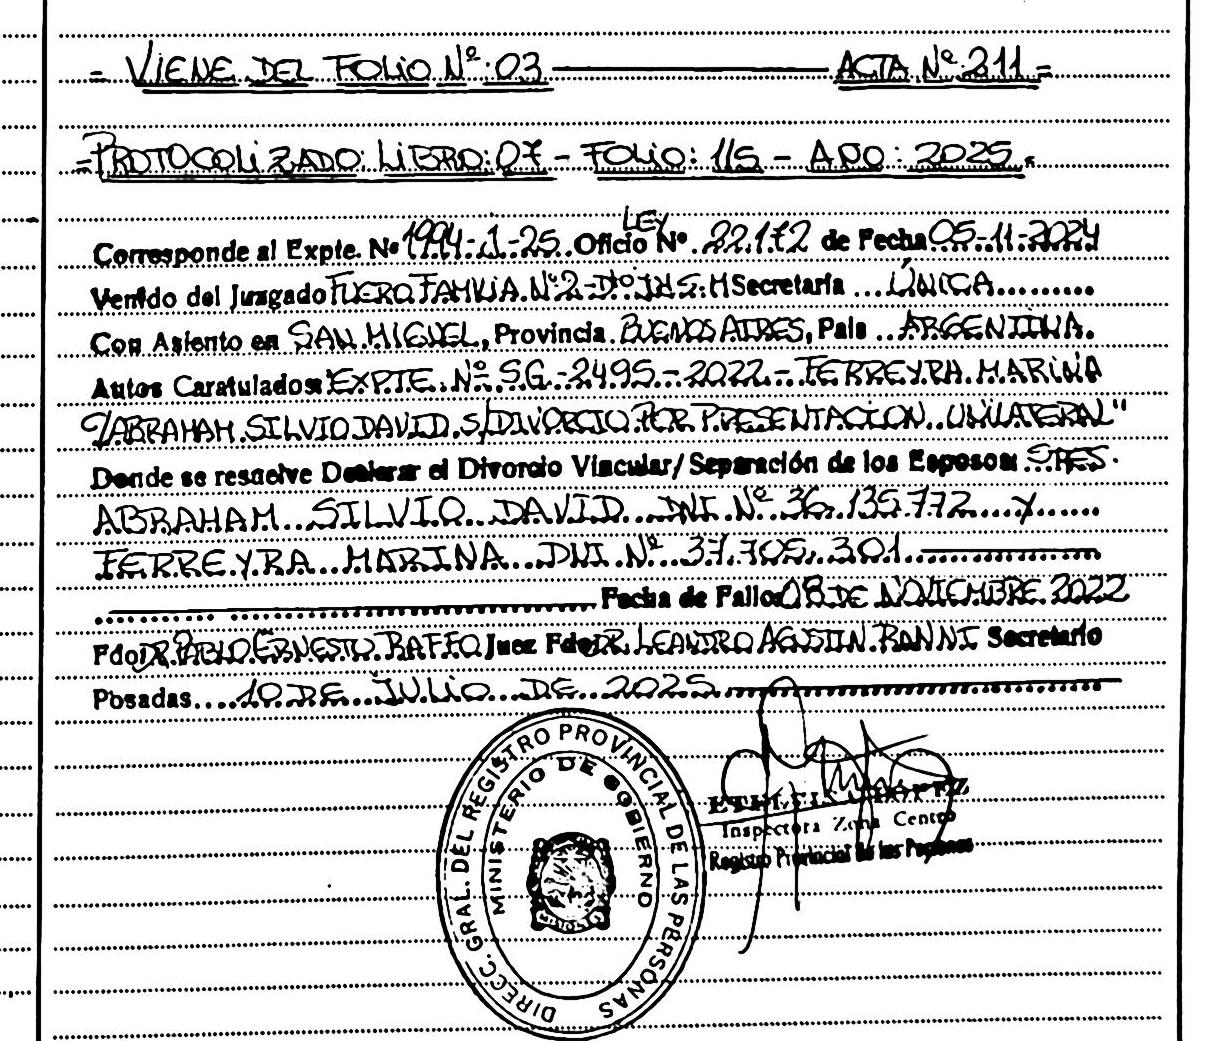 = VIENE DEL FOLIO Nº: 03 ACTA Nº 211 =
= PROTOCOLIZADO: LIBRO: 07 - FOLIO: 115 - AÑO: 2025.
LEY
Corresponde al Expte. Nº 1994-1-25 Oficio Nº 22.172 de Fecha 05-11-2024
Venido del Juzgado FUERO FAMILIA Nº 2 - Secretaría ... ÚNICA
Con Asiento en SAN MIGUEL, Provincia BUENOS AIRES, País ARGENTINA.
Autos Caratulados: "EXPTE. Nº SG-2495-2022- FERREYRA MARINA
C/ABRAHAM SILVIO DAVID S/DIVORCIO POR PRESENTACION UNILATERAL"
Donde se resuelve Declarar el Divorcio Vincular/Separación de los Esposos: SRES.
ABRAHAM SILVIO DAVID DNI Nº 36.135.772 y
FERREYRA MARINA DNI Nº 37.705.301
Fecha de Fallo: 08 DE NOVIEMBRE 2022
Fdo DR. PABLO ERNESTO RAFFO Juez Fdo DR. LEANDRO AGUSTIN RANNI Secretario
Posadas 10 DE JULIO DE 2025
DIRECC. GRAL. DEL REGISTRO PROVINCIAL DE LAS PERSONAS
MINISTERIO DE GOBIERNO
Inspectora Zona Centro
Registro Provincial de las Personas